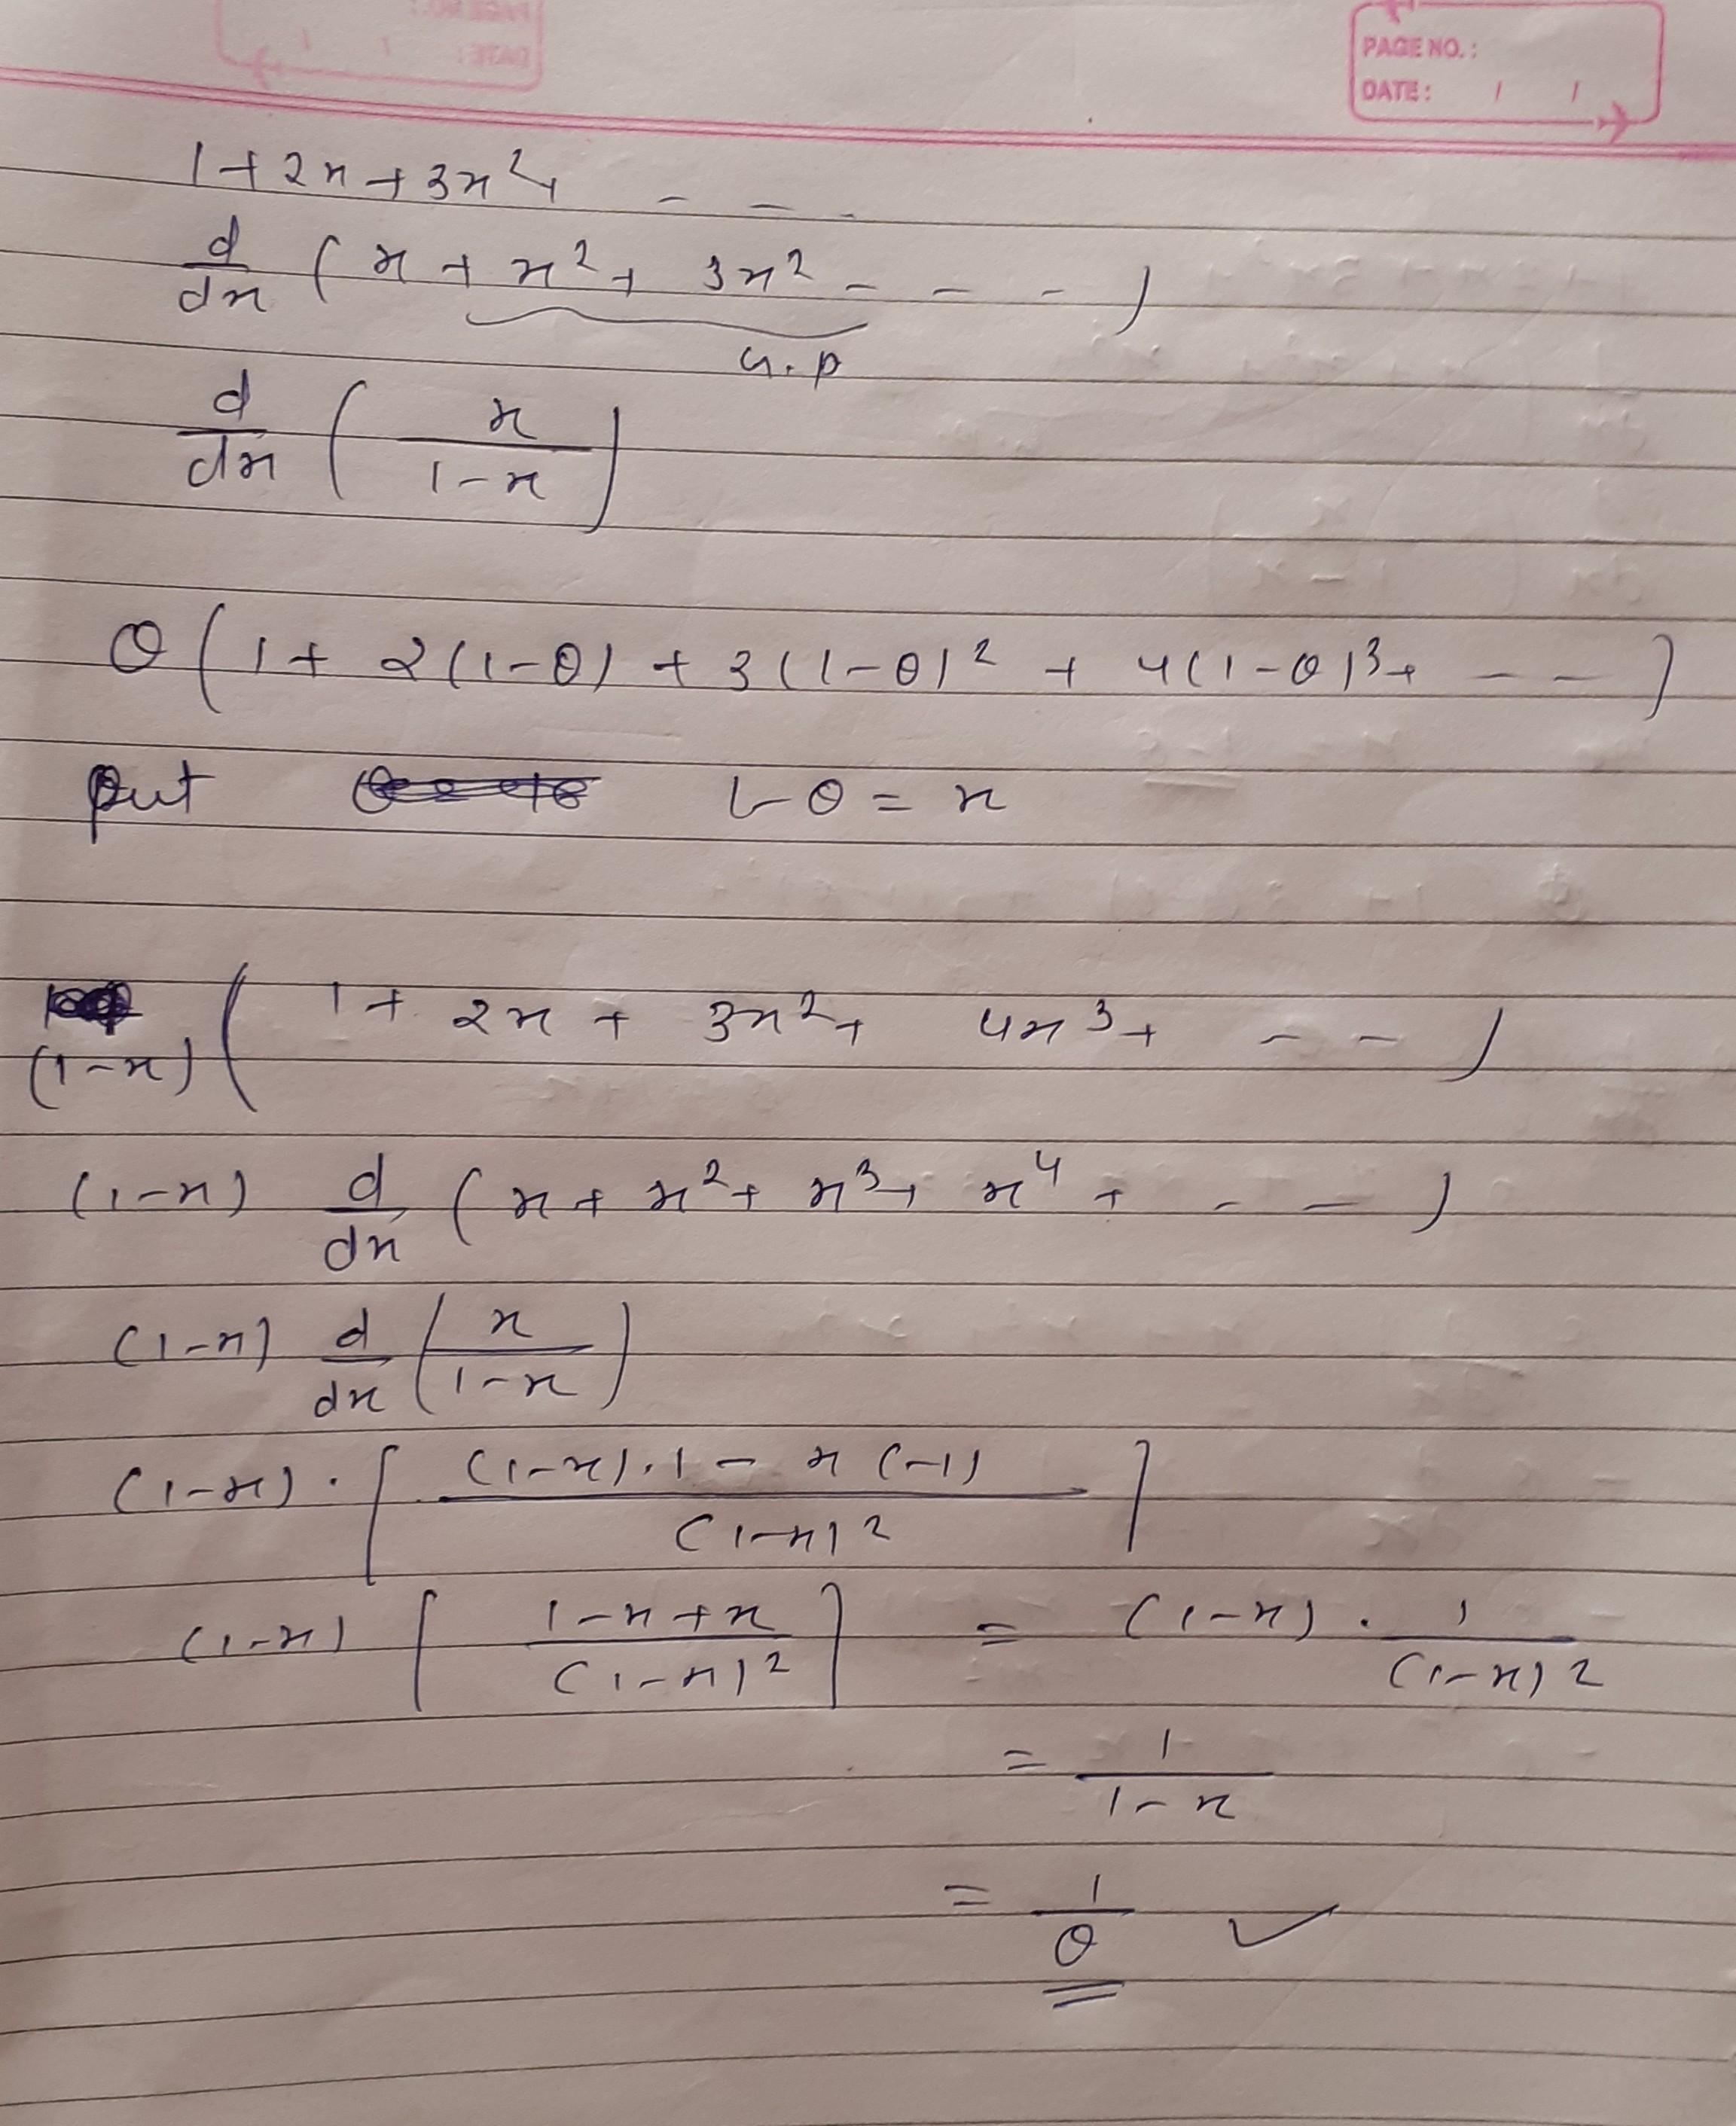 PAGE NO.:
DATE: / /
1+2x+3x²+ - - -
d/dx (x + x² + 3x² - - - )
G.P
d/dx (x/(1-x))
θ(1+ 2(1-θ) + 3(1-θ)² + 4(1-θ)³+ - - )
Put 1-θ = x
(1-x) (1+ 2x + 3x²+ 4x³+ - - )
(1-x) d/dx (x + x²+ x³+ x⁴ + - - )
(1-x) d/dx (x/(1-x))
(1-x) . [((1-x).1 - x(-1))/(1-x)²]
(1-x) [(1-x+x)/(1-x)²] = (1-x) . 1/(1-x)²
= 1/(1-x)
= 1/θ ✓